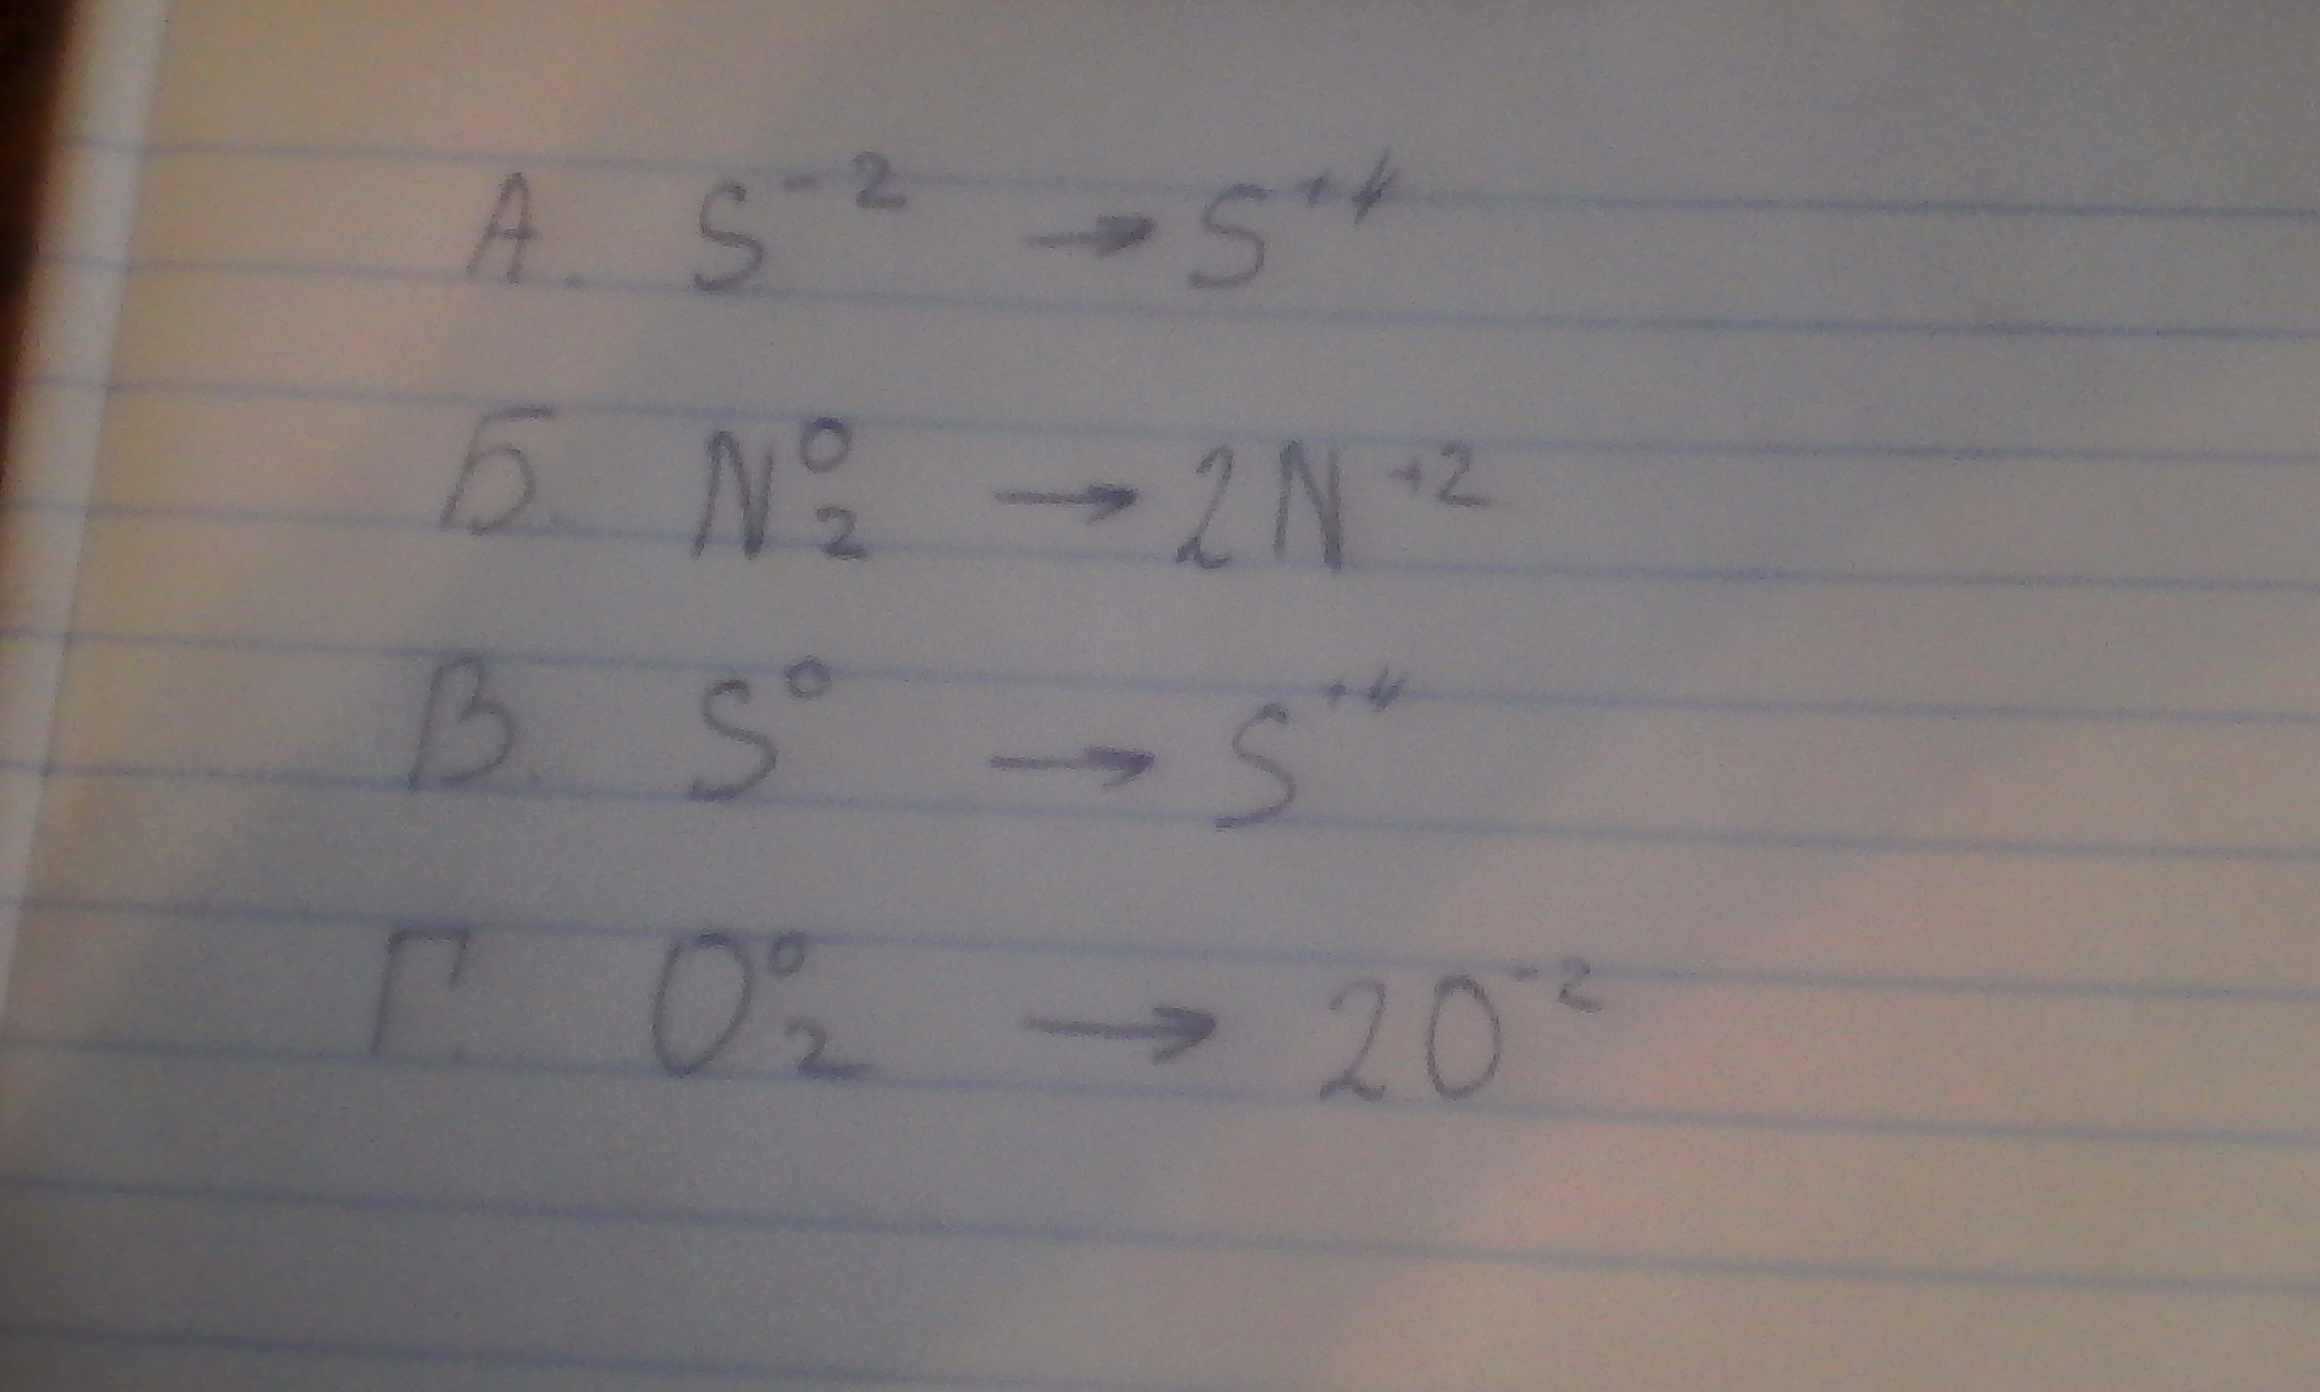 А. S⁻² → S⁺⁴
Б. N₂⁰ → 2N⁺²
В. S⁰ → S⁺⁴
Г. O₂⁰ → 2O⁻²